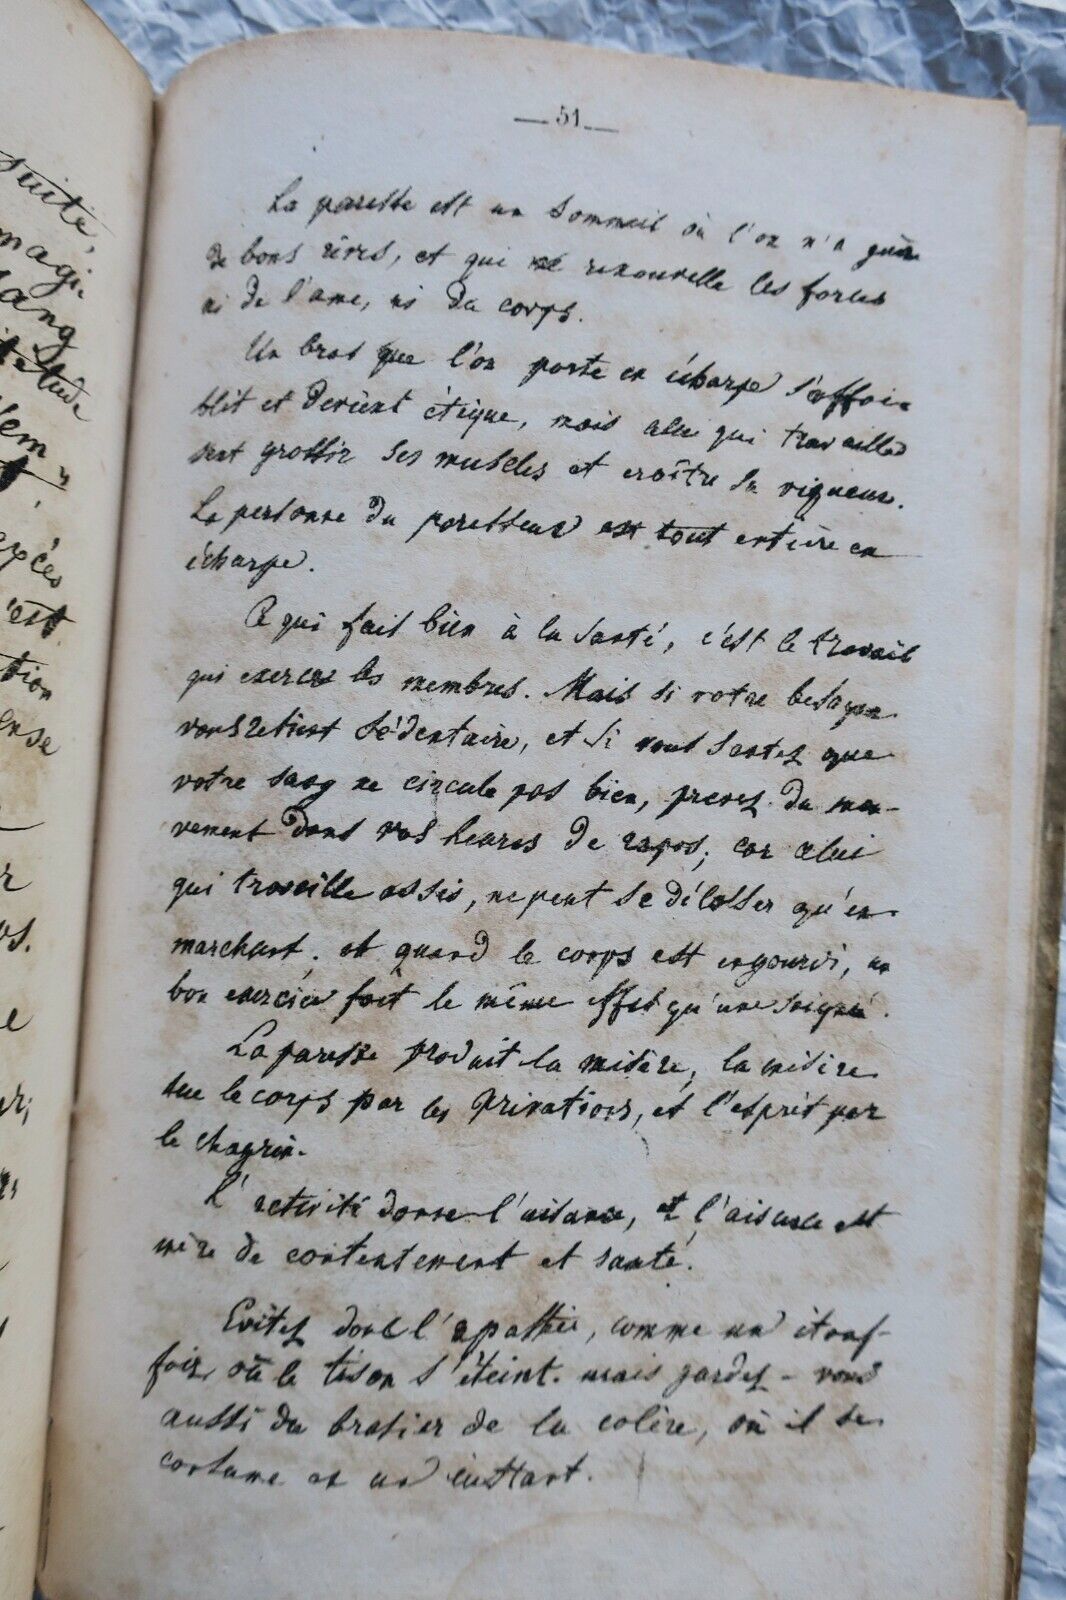 — 51 —
La paresse est un sommeil où l'on n'a guère
de bons rêves, et qui ne renouvelle les forces
ni de l'ame, ni du corps.
Un bras que l'on porte en écharpe s'affoi-
blit et devient étique, mais celui qui travaille
sent grossir ses muscles et croître sa vigueur.
La personne du paresseux est tout entière en
écharpe.
Ce qui fait bien à la santé, c'est le travail
qui exerce les membres. Mais si votre besogne
vous retient sédentaire, et si vous sentez que
votre sang ne circule pas bien, prenez du mou-
vement dans vos heures de repos; car celui
qui travaille assis, ne peut se délasser qu'en
marchant. et quand le corps est engourdi, un
bon exercice fait le même effet qu'une saignée.
La paresse produit la misère, la misère
tue le corps par les privations, et l'esprit par
le chagrin.
L'activité donne l'aisance, et l'aisance est
mère de contentement et santé.
Evitez donc l'apathie, comme un étouf-
foir, où le tison s'éteint. mais gardez-vous
aussi du brasier de la colère, où il se
consume en un instant.
suite,
magi-
Sang
l'étude
excès
c'est
tion
ense